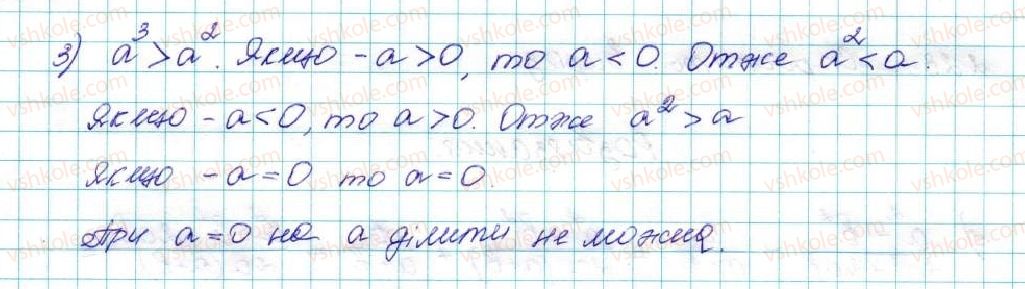 3) a³ > a². Якщо - a > 0, то a < 0. Отже a² < a.
якщо - a < 0, то a > 0. Отже a² > a
якщо - a = 0 то a = 0.
При a = 0 на a ділити не можна.